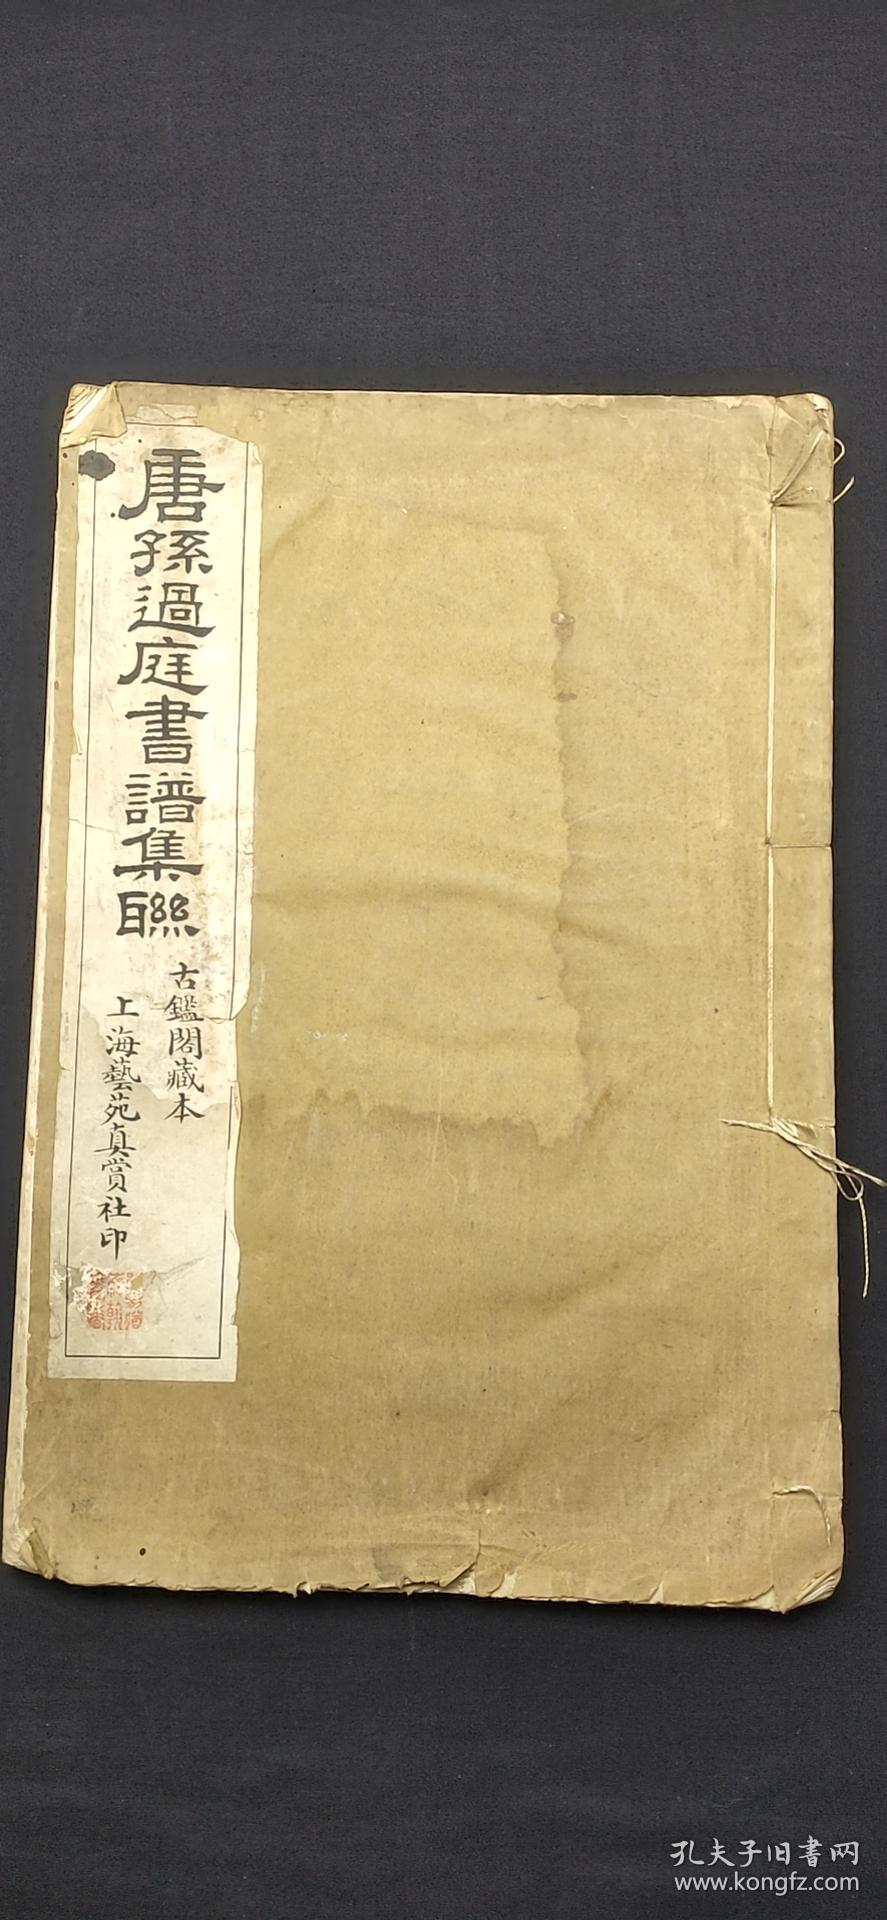 唐孫過庭書譜集聯
古鑑閣藏本
上海藝苑真賞社印
孔夫子旧书网
www.kongfz.com